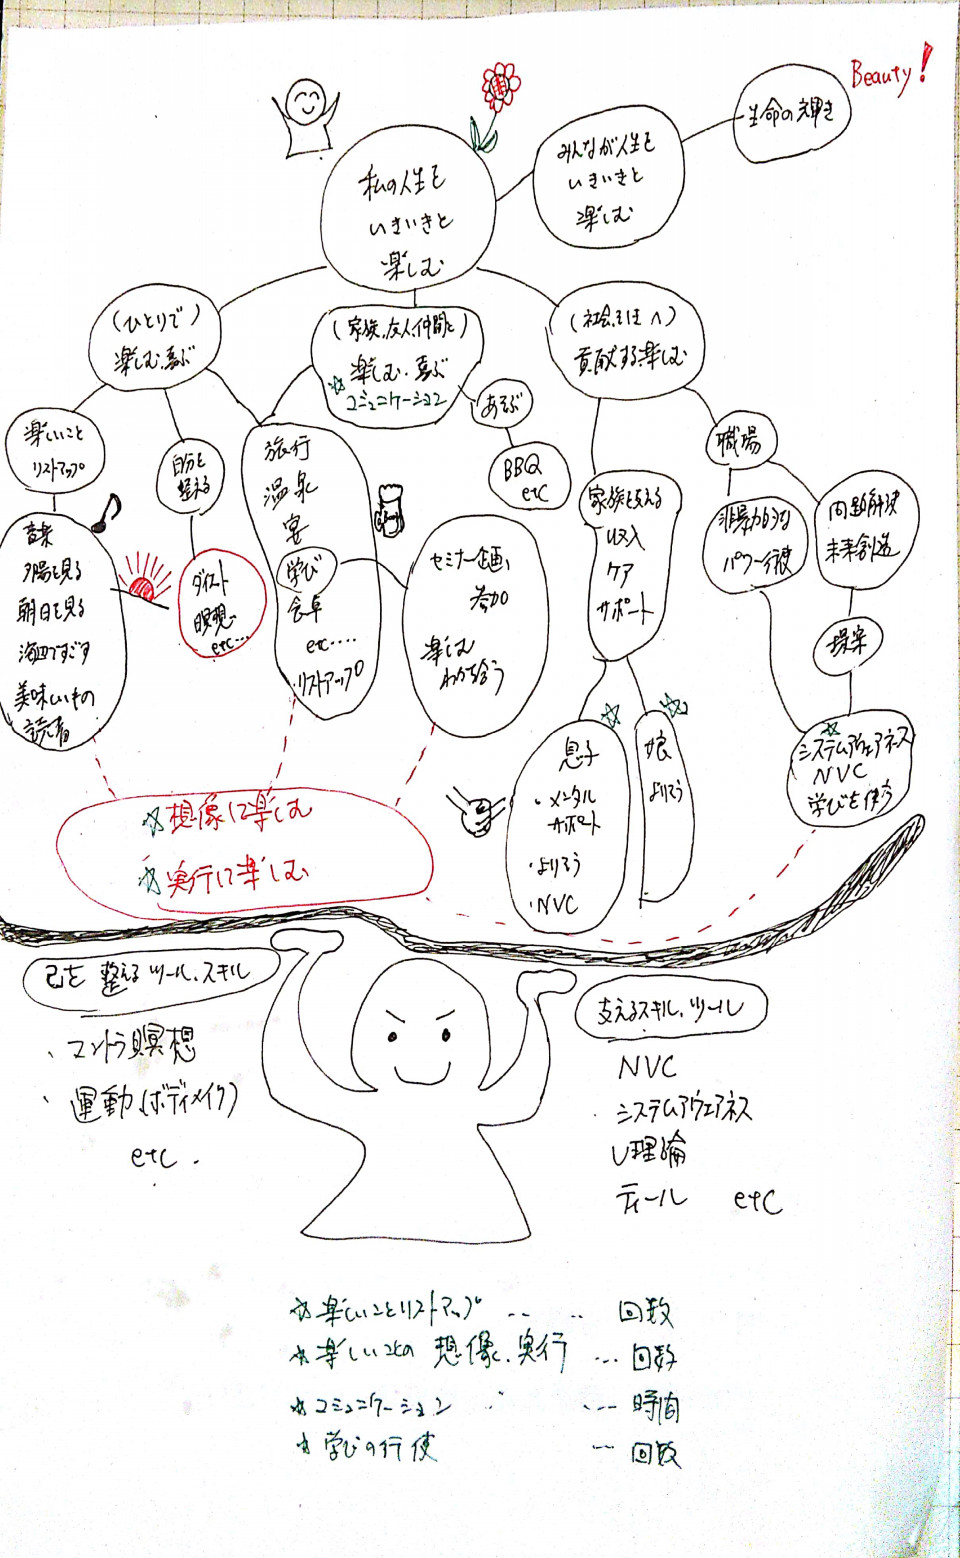 Beauty!
生命の輝き
みんなが人生を
いきいきと
楽しむ
私の人生を
いきいきと
楽しむ
(ひとりで)
楽しむ、喜ぶ
(家族、友人、仲間と)
楽しむ・喜ぶ
☆コミュニケーション
(社会、へ)
貢献する、楽しむ
楽しいこと
リストアップ
自分を
整える
あそぶ
BBQ
etc
職場
音楽
夕陽を見る
朝日を見る
海辺ですごす
美味いもの
読書
ダイエット
瞑想
etc...
旅行
温泉
宴
学び
食卓
etc....
・リストアップ
セミナー企画、
参加
楽しむ
わかち合う
家族を支える
収入
ケア
サポート
非暴力的な
パワー行使
問題解決
未来創造
提案
☆
システムアウェアネス
NVC
学びを使う
☆
息子
・メンタル
サポート
・よりそう
・NVC
☆
娘
よりそう
☆想像して楽しむ
☆実行して楽しむ
己を整えるツール、スキル
、マントラ瞑想
、運動(ボディメイク)
etc.
支えるスキル、ツール
NVC
システムアウェアネス
U理論
ティール etc
☆楽しいことリストアップ ‥ ‥ 回数
☆楽しいことの想像、実行 … 回数
☆コミュニケーション … 時間
☆学びの行使 … 回数